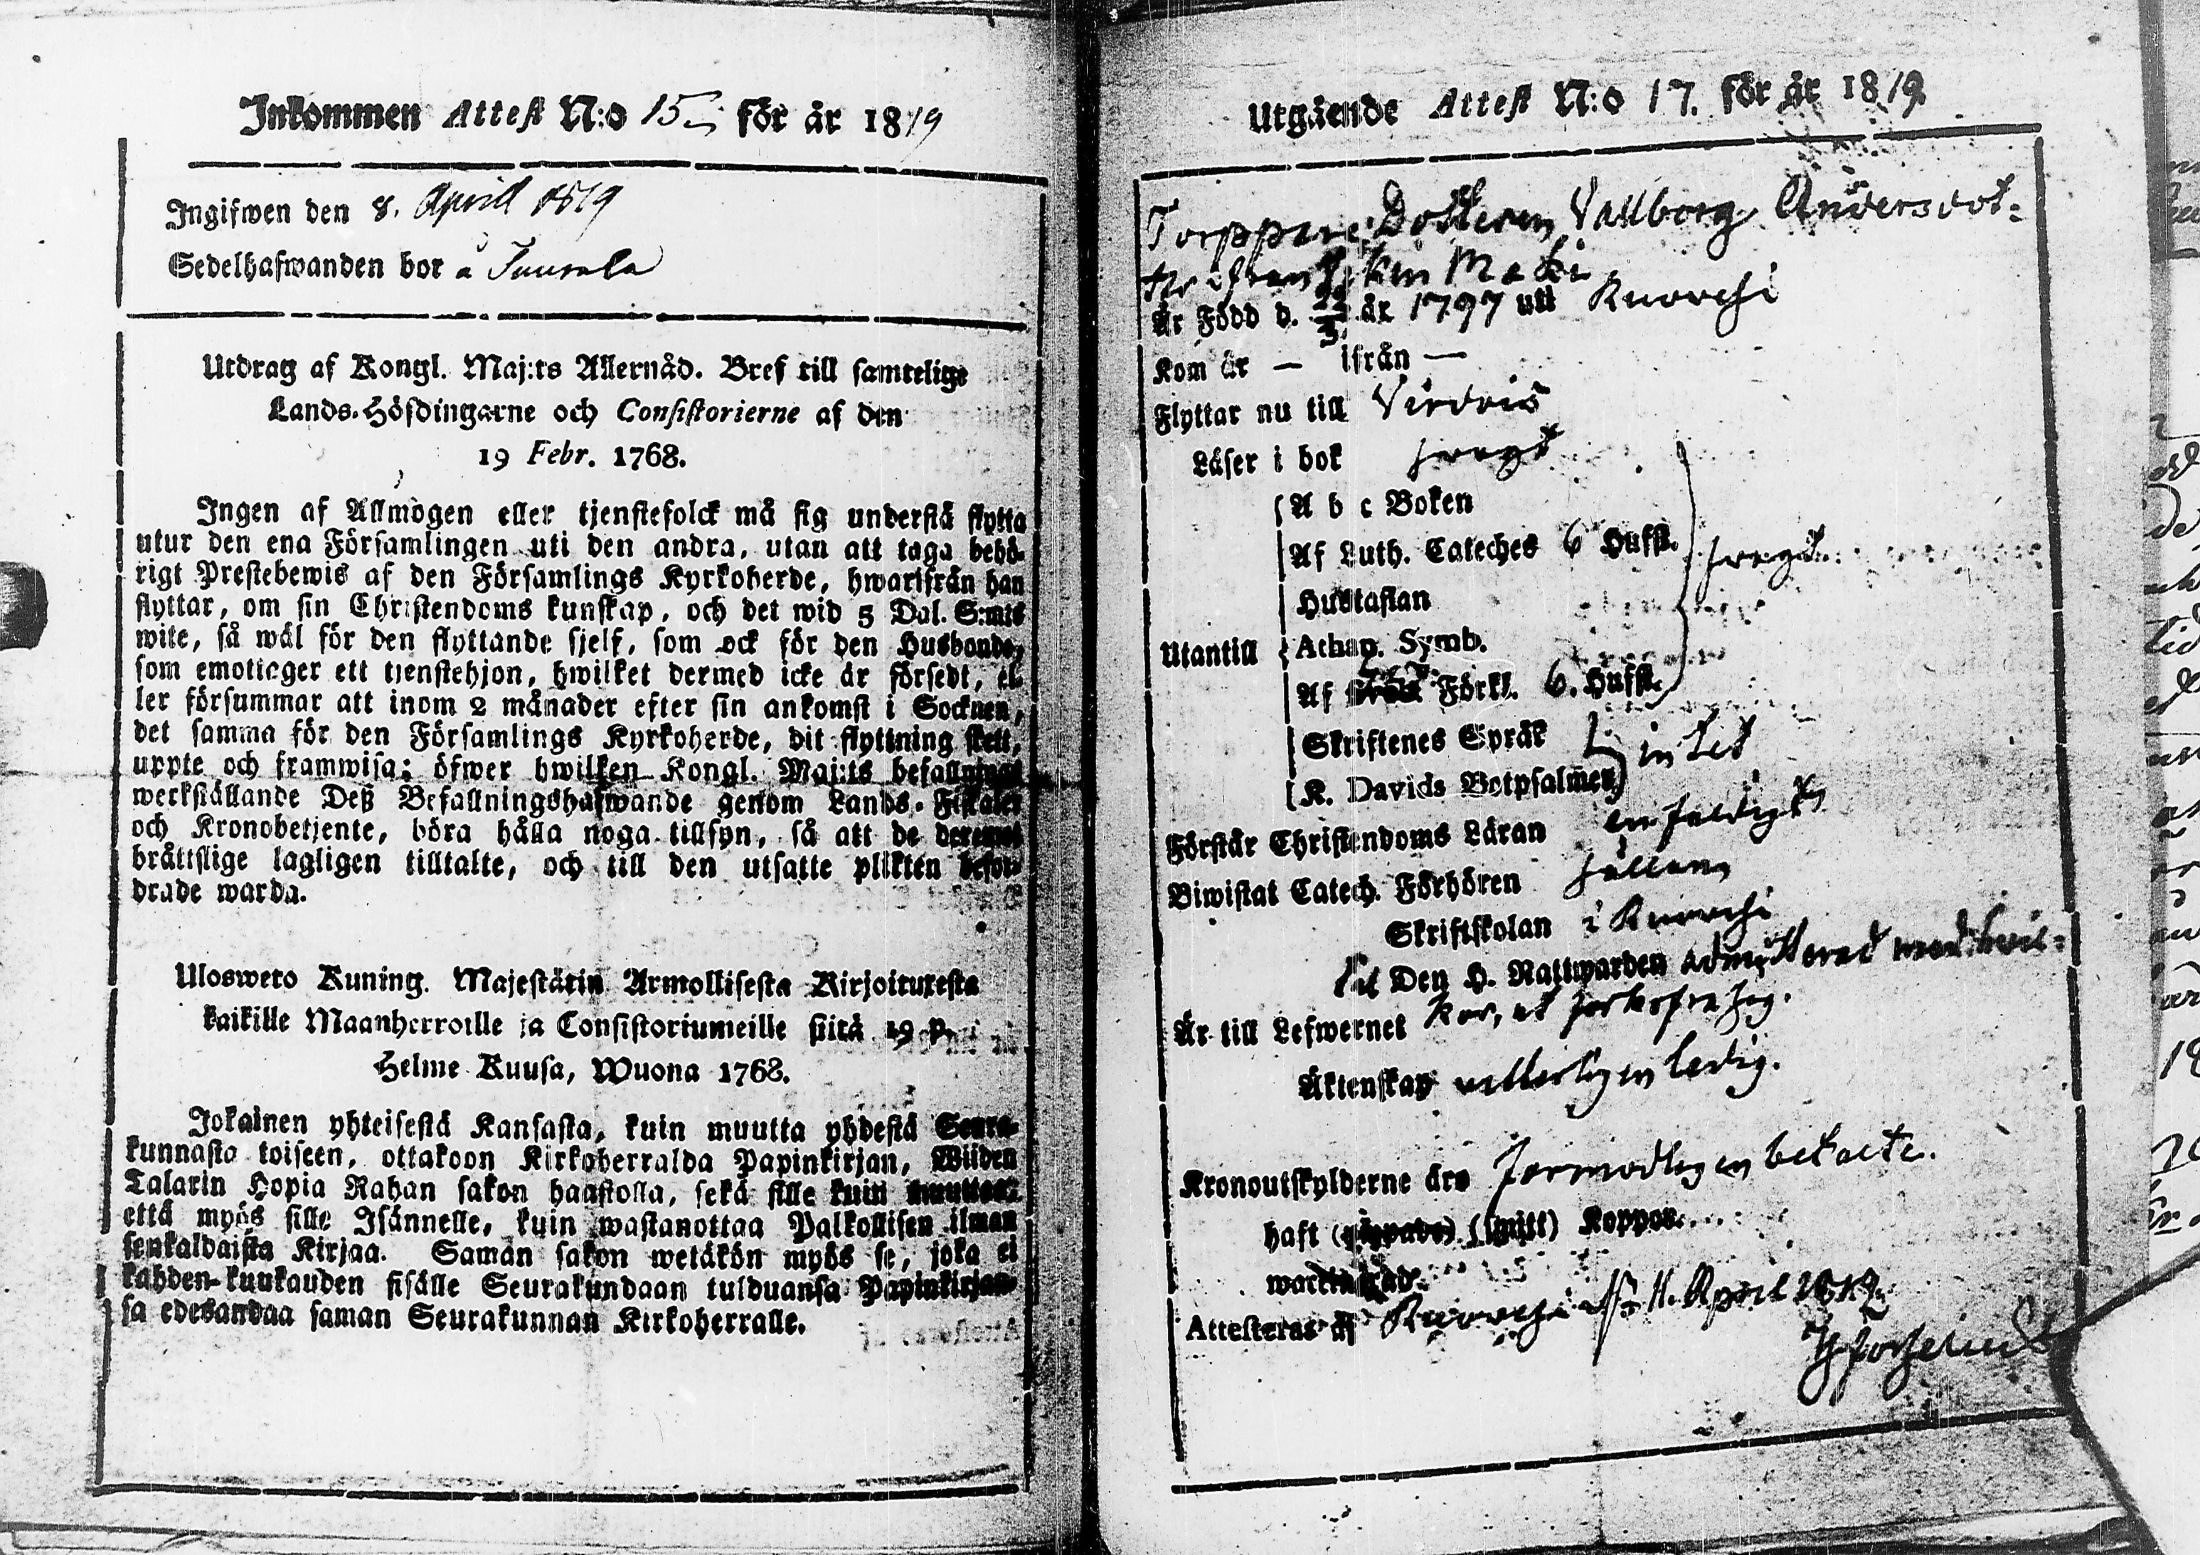 Inkommen Attest N:o 15 för år 1819
Ingifwen den 8. April 1819
Sedelhafwanden bor å Juurala
Utdrag af Kongl. Maj:ts Allernåd. Bref till samtelige
Lands-Höfdingarne och Consistorierne af den
19 Febr. 1768.
Ingen af Allmogen eller tjenstefolck må sig understå flytta
utur den ena Församlingen uti den andra, utan att taga behö-
rigt Prestebewis af den Församlings Kyrkoherde, hwarifrån han
flyttar, om sin Christendoms kunskap, och det wid 5 Dal. S:mts
wite, så wäl för den flyttande sjelf, som ock för den Husbonde,
som emottager ett tjenstehjon, hwilket dermed icke är försedt, el-
ler försummar att inom 2 månader efter sin ankomst i Socknen,
det samma för den Församlings Kyrkoherde, dit flyttning skett,
uppte och framwisa; öfwer hwilken Kongl. Maj:ts befallnings
werkställande Deß Befallningshafwande genom Lands-Fiskaler
och Kronobetjente, böra hålla noga tillsyn, så att de deremot
bråttslige lagligen tilltalte, och till den utsatte plikten befor-
drade warda.
Ulosweto Kuning. Majestätin Armollisesta Kirjoituxesta
kaikille Maanherroille ja Consistoriumeille siitä 19 p.
Helme Kuusa, Wuona 1768.
Jokainen yhteisestä Kansasta, kuin muutta yhdestä Seura-
kunnasta toiseen, ottakoon Kirkoherralda Papinkirjan, Wiiden
Talarin Hopia Rahan sakon haastolla, sekä sille kuin muuttaa:
että myös sille Isännelle, kuin wastanottaa Palkollisen ilman
senkaldaista Kirjaa. Saman sakon wetäkön myös se, joka ei
kahden kuukauden sisälle Seurakundaan tulduansa Papinkirjan-
sa edesandaa saman Seurakunnan Kirkoherralle.
Utgående Attest N:o 17. för år 1819
Torppare Dotteren Vallborg Andersdot:
Mäki
Är Född d. 22/3 år 1797 uti Kuorehi
Kom år — ifrån —
Flyttar nu till Virdois
Läser i bok svagt
A b c Boken
Af Luth. Cateches 6 Hufst. svagt
Hustaflan
Utantill Athan. Symb.
Af Förkl. 6. Hufst.
Skriftenes Språk
intet
K. Davids Botpsalmer
Förstår Christendoms Läran enfaldigt
Biwistat Catech. Förhören sällan
Skriftskolan i Kuorehi
Den H. Nattwarden admitterad med wil:
Är till Lefwernet kor,
Äktenskap ledig.
Kronoutskylderne äro förmodligen betalte.
haft (smitt) Koppor.
Attesteras af Kuorehi d. 11. April 1819